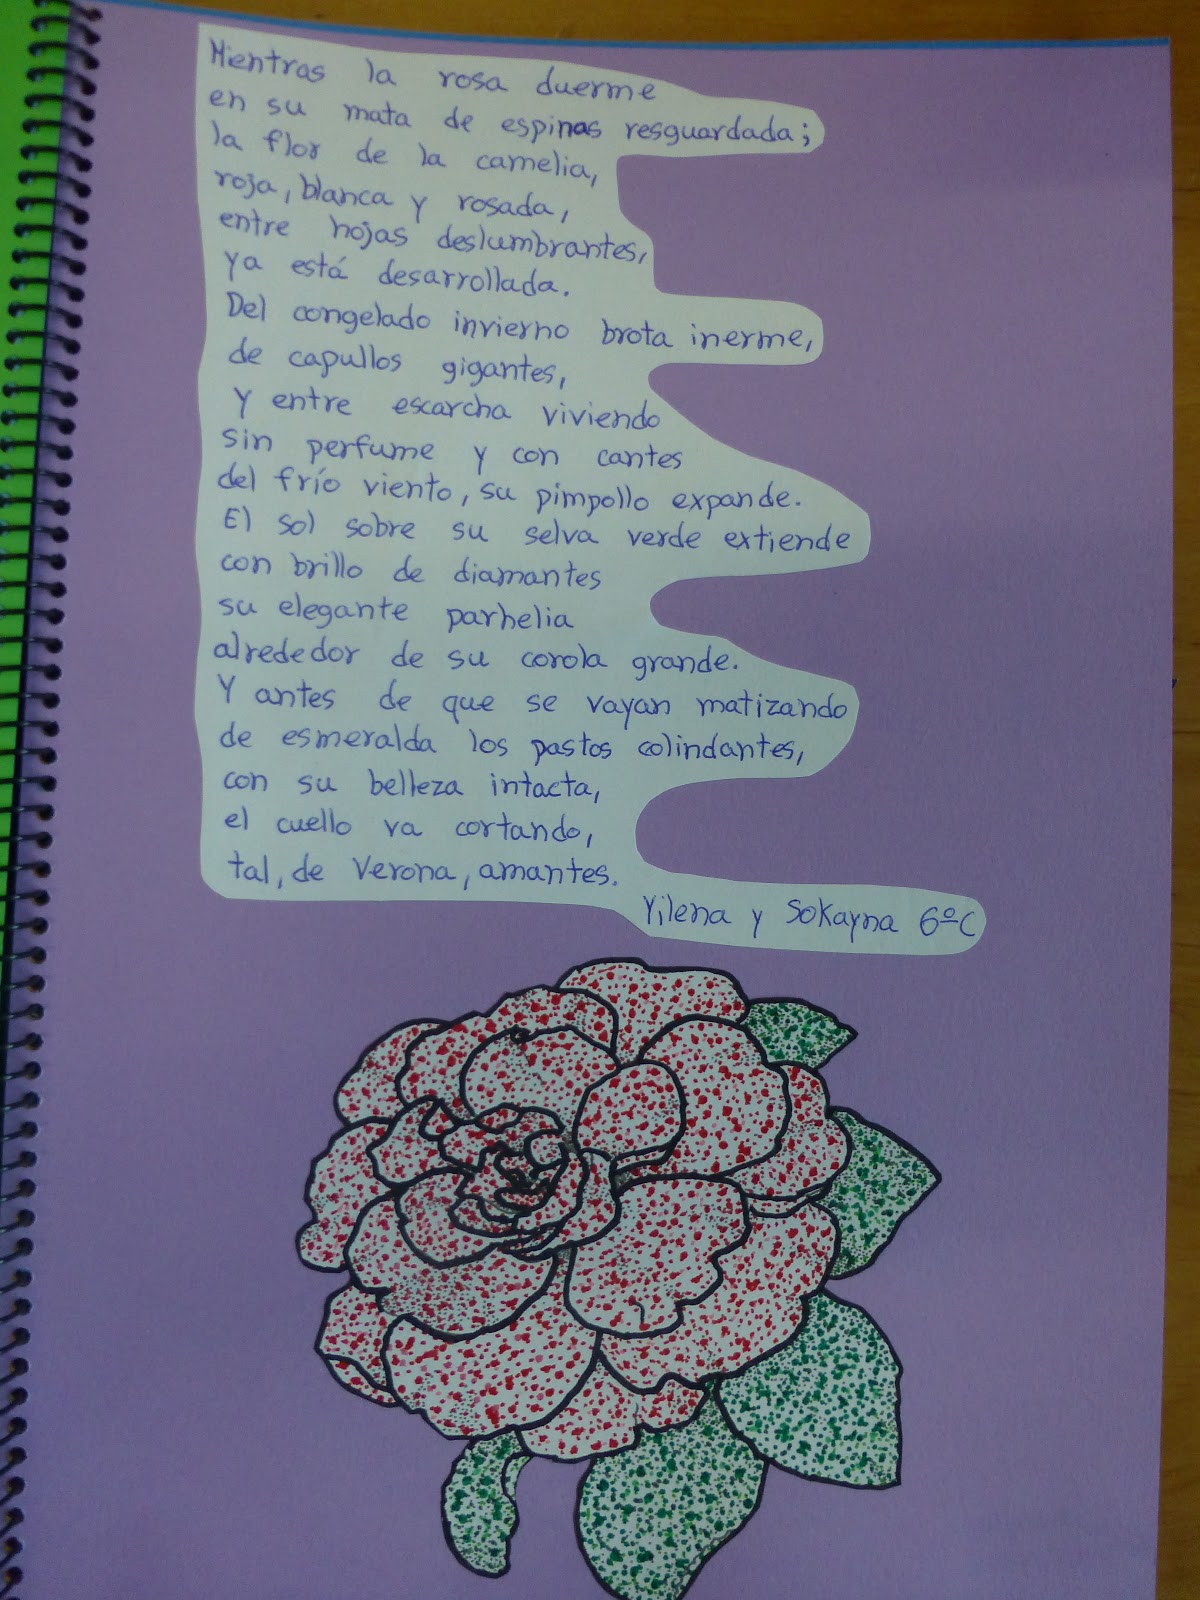 Mientras la rosa duerme
en su mata de espinas resguardada;
la flor de la camelia,
roja, blanca y rosada,
entre hojas deslumbrantes,
ya está desarrollada.
Del congelado invierno brota inerme,
de capullos gigantes,
y entre escarcha viviendo
sin perfume y con cantes
del frío viento, su pimpollo expande.
El sol sobre su selva verde extiende
con brillo de diamantes
su elegante parhelia
alrededor de su corola grande.
Y antes de que se vayan matizando
de esmeralda los pastos colindantes,
con su belleza intacta,
el cuello va cortando,
tal, de Verona, amantes.
Yilena y Sokayna 6ºC